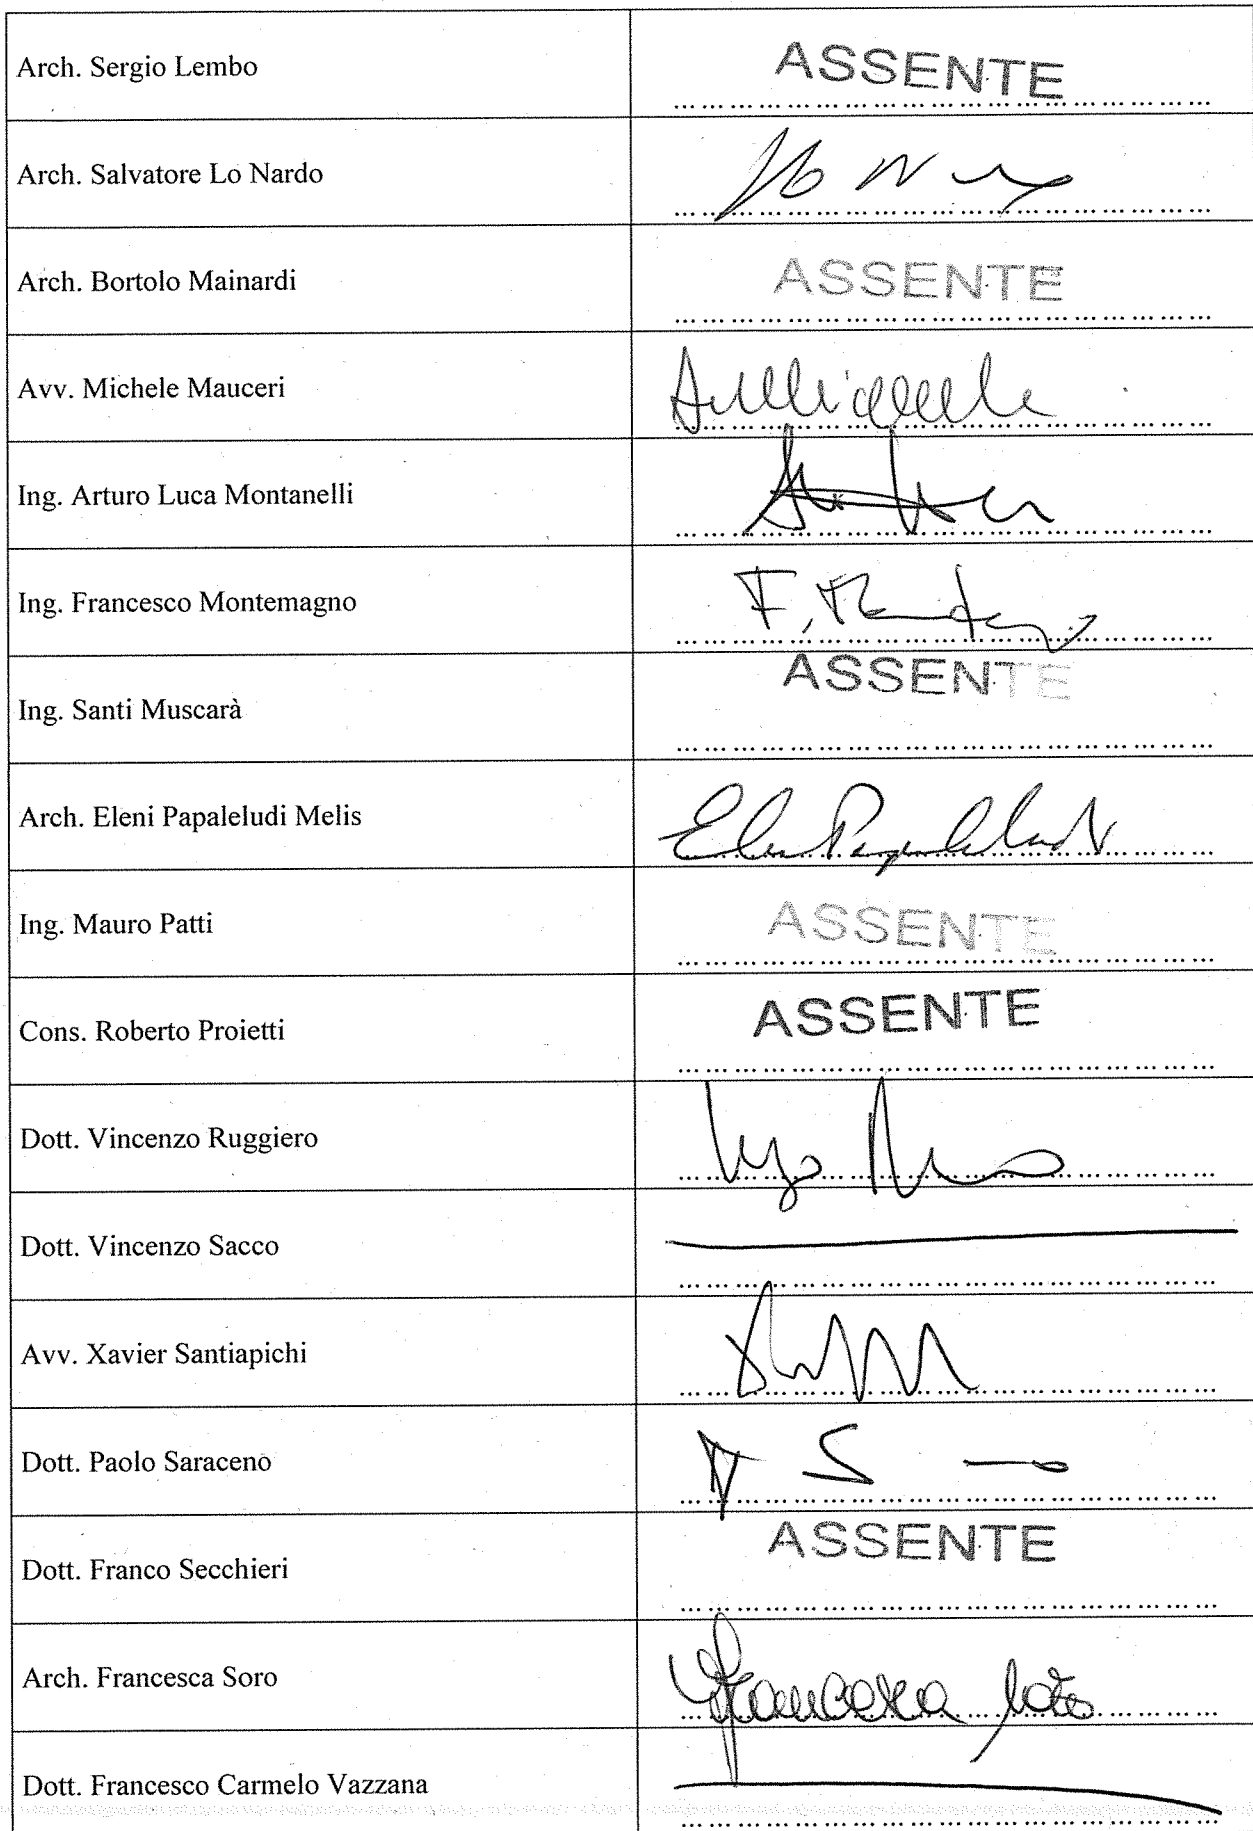 Arch. Sergio Lembo ASSENTE
Arch. Salvatore Lo Nardo
Arch. Bortolo Mainardi ASSENTE
Avv. Michele Mauceri
Ing. Arturo Luca Montanelli
Ing. Francesco Montemagno
Ing. Santi Muscarà ASSENTE
Arch. Eleni Papaleludi Melis
Ing. Mauro Patti ASSENTE
Cons. Roberto Proietti ASSENTE
Dott. Vincenzo Ruggiero
Dott. Vincenzo Sacco
Avv. Xavier Santiapichi
Dott. Paolo Saraceno
Dott. Franco Secchieri ASSENTE
Arch. Francesca Soro
Dott. Francesco Carmelo Vazzana